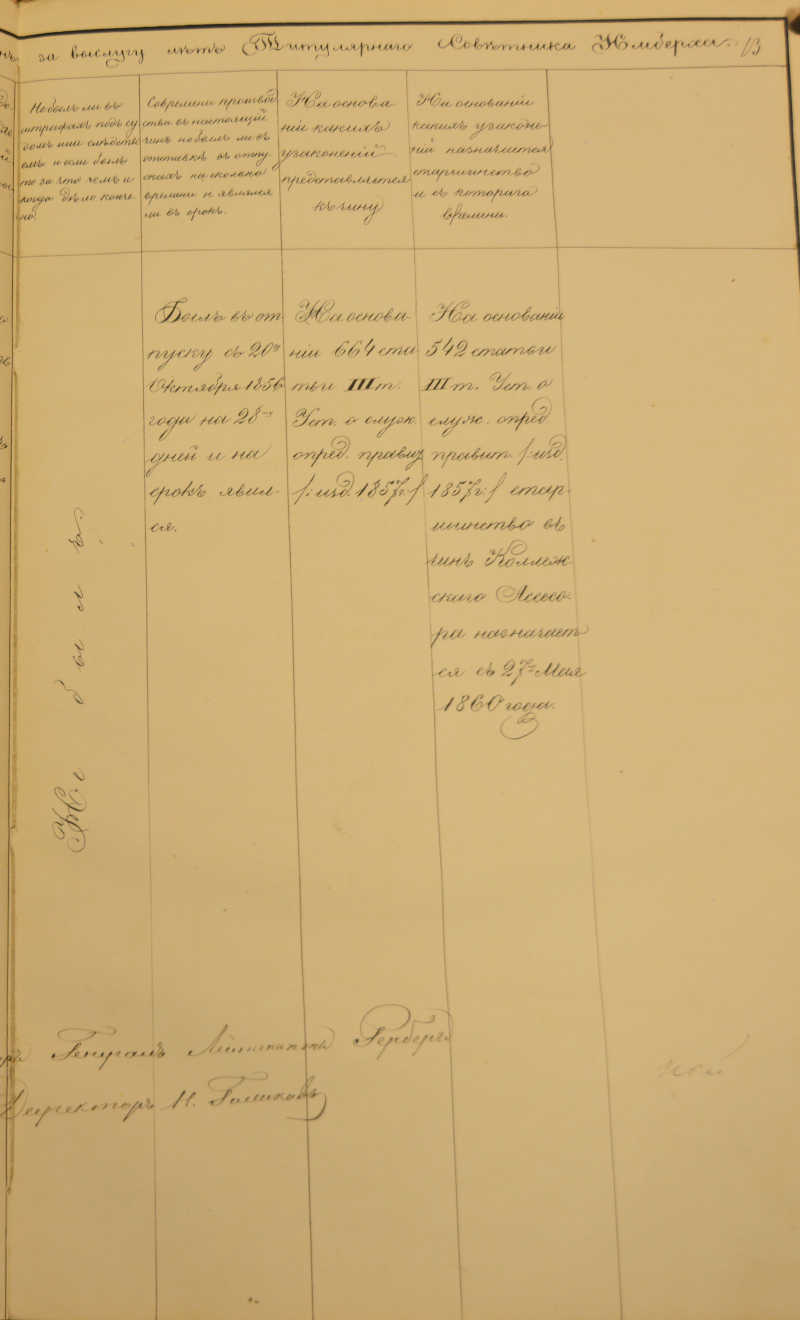 за выслугу летъ Титулярнаго Советника 13
Не былъ ли въ
штрафахъ подъ су
домъ или слѣдстві
емъ и если былъ
то за что чемъ и
когда дѣло конче
но.
Современи производ
ства въ настоящій
чинъ не былъ ли въ
отставкѣ въ отпу
скахъ на сколько
времени и являлся
ли въ срокъ.
На основа
ніи какихъ
узаконеній
представляется
къ чину
На основаніи
какихъ узаконе
ній назначается
старшинство
и съ котораго
времени.
Не былъ.
Былъ въ от
пуску съ 20го
Октября 1856
года на 28мь
дней и на
срокъ явил-
ся.
На основа-
ніи 664 ста
тьи III т.
Уст. о служ.
опред. правит
/: изд. 1857 г:/
На основаніи
542 статьи
III т. Уст. о
служ. опред.
правит. /: изд.
1857 г:/ стар-
шинство въ
чинѣ Коллеж
скаго Ассесо-
ра назначает
ся съ 27го Мая
1860 года.
Генералъ Лейтенантъ Герберъ
Директоръ Н.